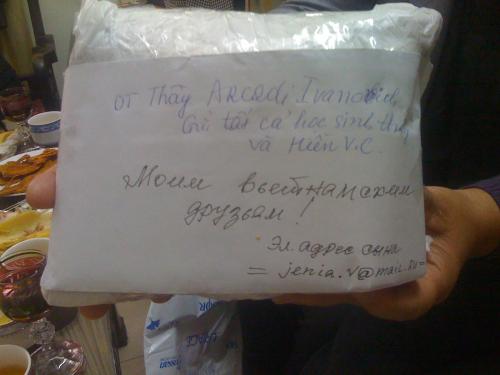 от Thầy Arcadi Ivanovich
Gửi tất cả học sinh
và Hiền V.C.
Моим вьетнамским
друзьям!
Эл. адрес сына
= jenia.v@mail.ru =